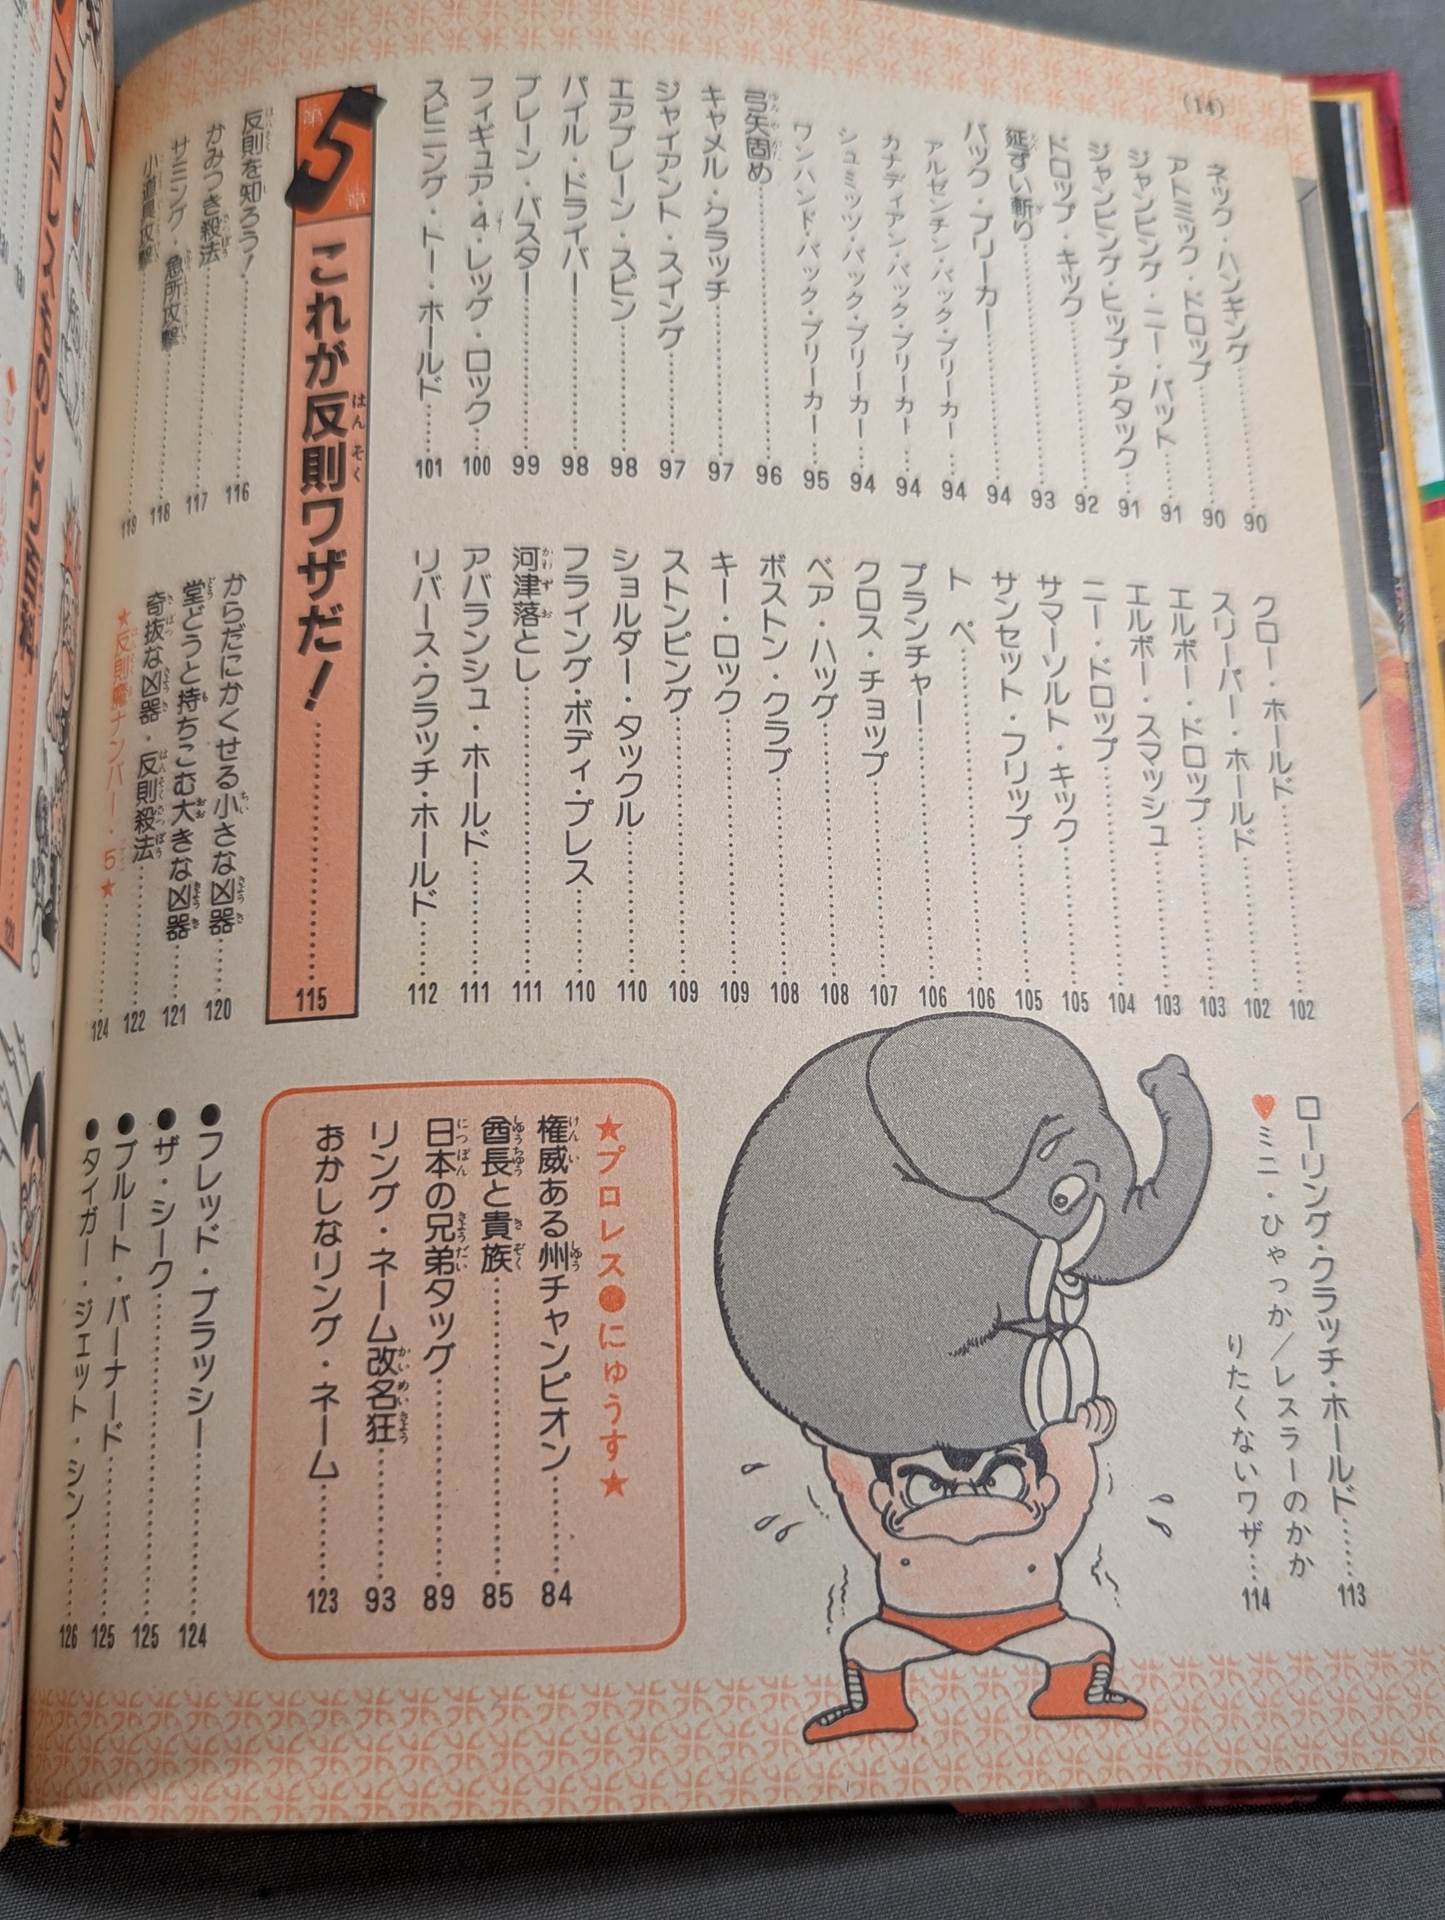 (14)
ネック・ハンキング……90
アトミック・ドロップ……90
ジャンピング・ニー・パット……91
ジャンピング・ヒップ・アタック……91
ドロップ・キック……92
延ずい斬り……93
バック・ブリーカー……94
アルゼンチン・バック・ブリーカー……94
カナディアン・バック・ブリーカー……94
シュミッツ・バック・ブリーカー……94
ワンハンド・バック・ブリーカー……95
弓矢固め……96
キャメル・クラッチ……97
ジャイアント・スイング……97
エアプレーン・スピン……98
パイル・ドライバー……98
ブレーン・バスター……99
フィギュア・4・レッグ・ロック……100
スピニング・トー・ホールド……101
クロー・ホールド……102
スリーパー・ホールド……102
エルボー・ドロップ……103
エルボー・スマッシュ……103
ニー・ドロップ……104
サマーソルト・キック……105
サンセット・フリップ……105
トペ……106
プランチャー……106
クロス・チョップ……107
ベア・ハッグ……108
ボストン・クラブ……108
キー・ロック……109
ストンピング……109
ショルダー・タックル……110
フライング・ボディ・プレス……110
河津落とし……111
アバランシュ・ホールド……111
リバース・クラッチ・ホールド……112
ローリング・クラッチ・ホールド……113
♥ミニ・ひゃっか/レスラーのかか
りたくないワザ……114
第5章 これが反則ワザだ!……115
反則を知ろう!……116
かみつき殺法……117
サミング・急所攻撃……118
小道具攻撃……119
からだにかくせる小さな凶器……120
堂どうと持ちこむ大きな凶器……121
奇抜な凶器・反則殺法……122
★反則魔ナンバー・5★……124
●フレッド・ブラッシー……124
●ザ・シーク……125
●ブルート・バーナード……125
●タイガー・ジェット・シン……126
★プロレス●にゅうす★
権威ある州チャンピオン……84
酋長と貴族……85
日本の兄弟タッグ……89
リング・ネーム改名狂……93
おかしなリング・ネーム……123